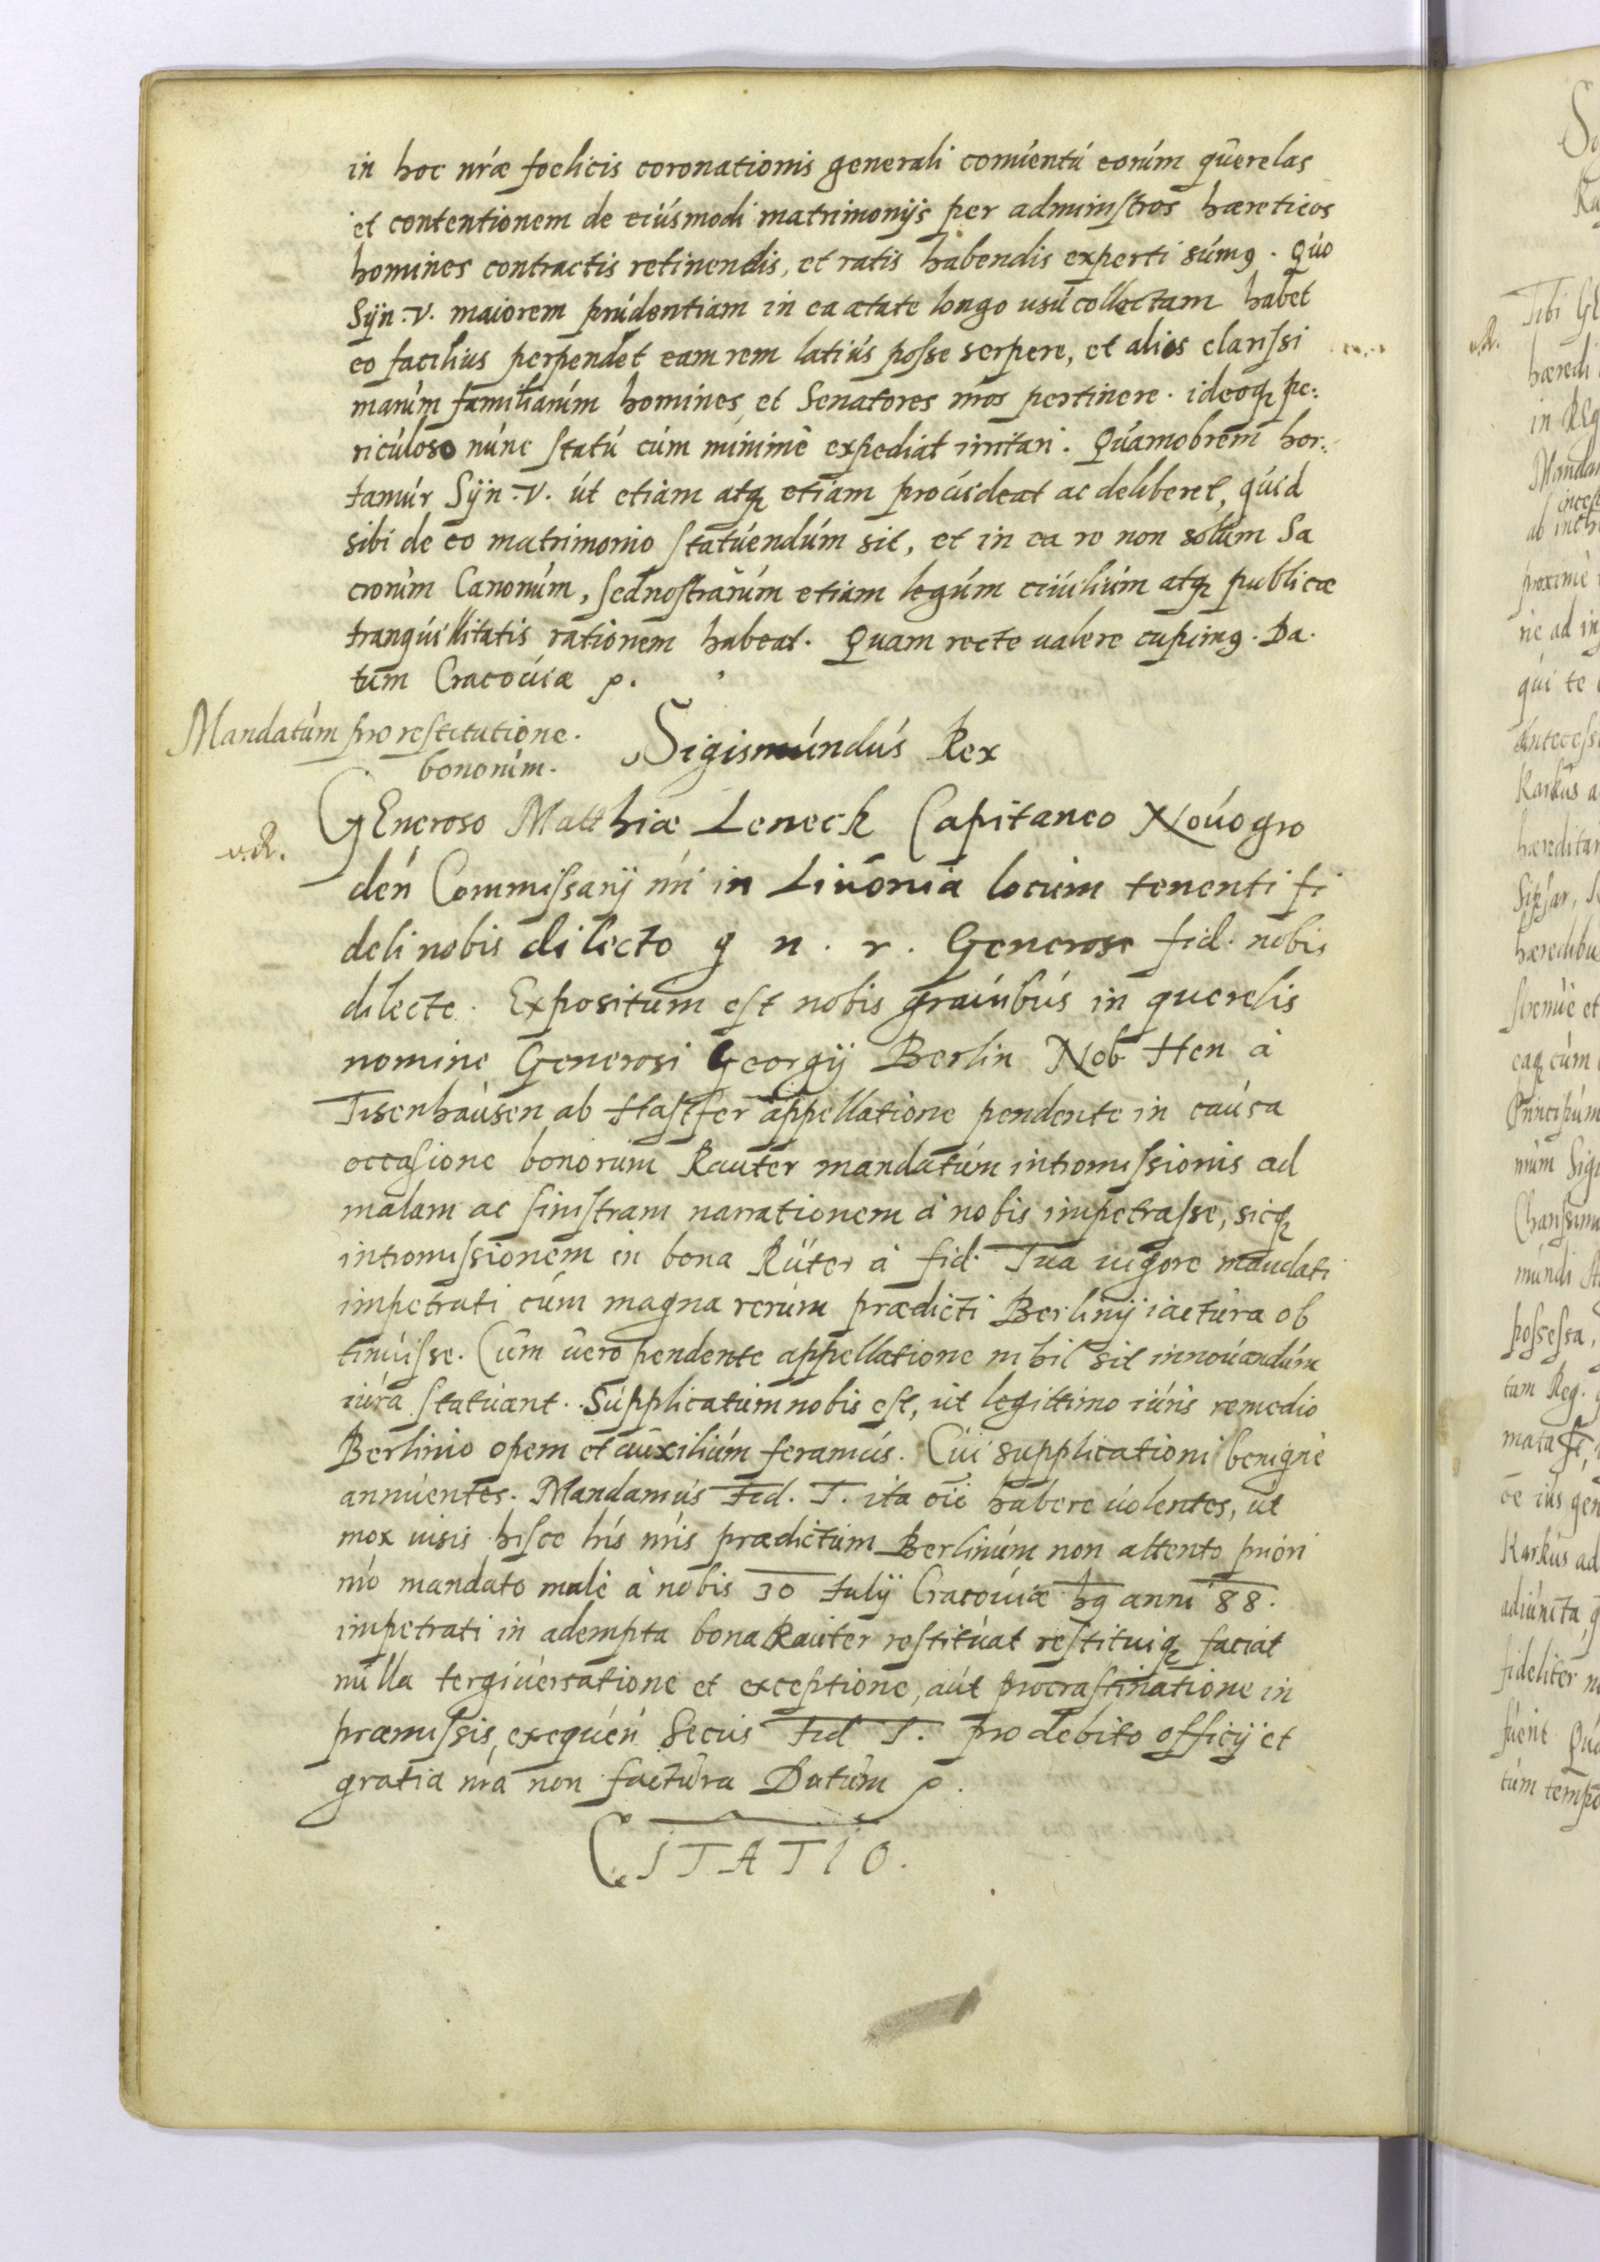 in hoc nræ foelicis coronationis generali conuentu eorum querelas
et contentionem de eiusmodi matrimonijs per administros hæreticos
homines contractis retinendis, et ratis habendis experti sumꝯ. Quo
Syn. V. maiorem prudentiam in ea ætate longo usu collectam habet
eo facilius perpendet eam rem latius posse serpere, et alios clarissi
marum familiarum homines et Senatores nros pertinere. ideoqꝫ pe:
riculoso nunc statu cum minimè expediat irritari. Quamobrem hor:
tamur Syn. V. ut etiam atqꝫ etiam prouideat ac deliberet, quid
sibi de eo matrimonio statuendum sit, et in ea re non solum Sa
crorum Canonum, sed nostrarum etiam legum ciuilium atqꝫ publicæ
tranquillitatis rationem habeat. Quam recte ualere cupimꝯ. Da.
tum Cracouiæ ꝭ.
Mandatum pro restitutione
bonorum.
Sigismundus Rex
GEneroso Matthiæ Leneck Capitaneo Nouogro
den Commissarij nri in Liuonia locum tenenti fi
deli nobis dilecto g n. r. Generose fid. nobis
dilecte. Expositum est nobis grauibus in querelis
nomine Generosi Georgij Berlin Nob Hen à
Tisenhausen ab Hastfer appellatione pendente in causa
occasione bonorum Rauter mandatum intromissionis ad
malam ac sinistram narrationem à nobis impetrasse, sicqꝫ
intromissionem in bona Rüter à fid. Tua uigore mandati
impetrati cum magna rerum prædicti Berlinij iactura ob
tinuisse. Cum uero pendente appellatione nihil sit innouandum
iura statuant. Supplicatum nobis est, ut legittimo iuris remedio
Berlinio opem et auxilium feramus. Cui supplicationi benigne
annuentes. Mandamus Fid. T. ita oīe habere uolentes, ut
mox uisis hisce lris nris prædictum Berlinum non attento priori
nro mandato malè à nobis 30 Iulij Cracouiæ hꝯ anni 88.
impetrati in adempta bona Rauter restituat restituiqꝫ faciat
nulla tergiuersatione et exceptione, aut procrastinatione in
præmissis, exequen Secus Fid T. pro debito officij et
gratia nra non factura Datum ꝭ.
CITATIO.